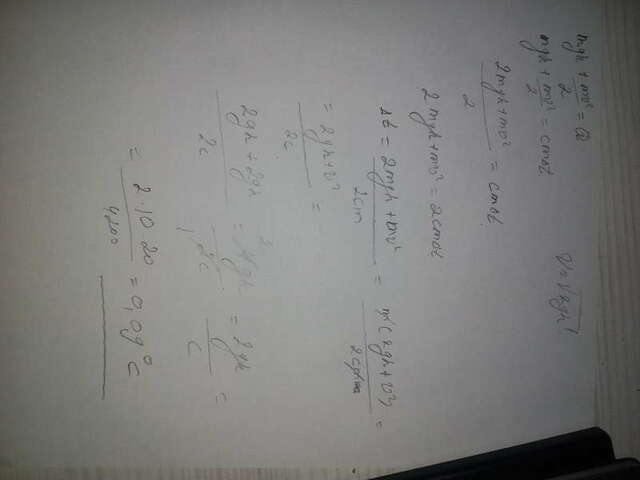 mgh + mv²/2 = Q
v = √2gh
mgh + mv²/2 = cmΔt
(2mgh + mv²)/2 = cmΔt
2mgh + mv² = 2cmΔt
Δt = (2mgh + mv²)/2cm = m(2gh + v²)/2cm =
= (2gh + v²)/2c =
(2gh + 2gh)/2c = 4gh/2c = 2gh/c =
= 2·10·20/4200 = 0,09°C